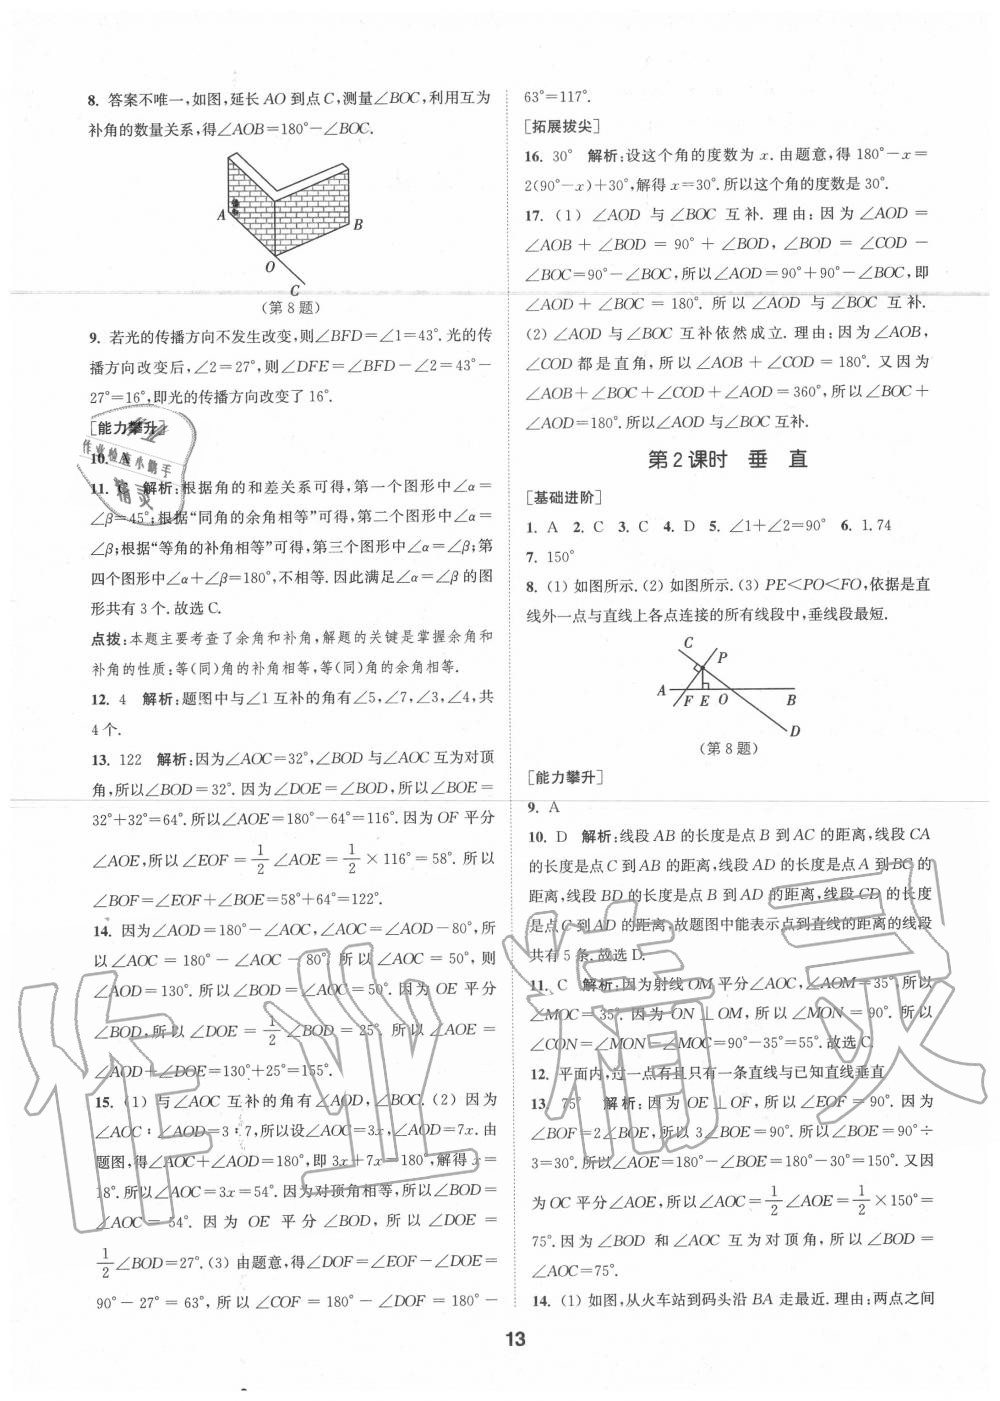 8. 答案不唯一,如图,延长 AO 到点 C,测量∠BOC,利用互为
补角的数量关系,得∠AOB=180°−∠BOC.
A
B
O
C
(第 8 题)
9. 若光的传播方向不发生改变,则∠BFD=∠1=43°.光的传
播方向改变后,∠2=27°,则∠DFE=∠BFD−∠2=43°−
27°=16°,即光的传播方向改变了 16°.
[能力攀升]
10. A
11. C 解析:根据角的和差关系可得,第一个图形中∠α=
∠β=45°;根据“同角的余角相等”可得,第二个图形中∠α=
∠β;根据“等角的补角相等”可得,第三个图形中∠α=∠β;第
四个图形中∠α+∠β=180°,不相等.因此满足∠α=∠β的图
形共有 3 个.故选 C.
点拨:本题主要考查了余角和补角,解题的关键是掌握余角和
补角的性质:等(同)角的补角相等,等(同)角的余角相等.
12. 4 解析:题图中与∠1 互补的角有∠5,∠7,∠3,∠4,共
4 个.
13. 122 解析:因为∠AOC=32°,∠BOD 与∠AOC 互为对顶
角,所以∠BOD=32°.因为∠DOE=∠BOD,所以∠BOE=
32°+32°=64°.所以∠AOE=180°−64°=116°.因为 OF 平分
∠AOE,所以∠EOF=1/2∠AOE=1/2×116°=58°.所以
∠BOF=∠EOF+∠BOE=58°+64°=122°.
14. 因为∠AOD=180°−∠AOC,∠AOC=∠AOD−80°,所
以∠AOC=180°−∠AOC−80°.所以∠AOC=50°,则
∠AOD=130°.所以∠BOD=∠AOC=50°.因为 OE 平分
∠BOD,所以∠DOE=1/2∠BOD=25°.所以∠AOE=
∠AOD+∠DOE=130°+25°=155°.
15. (1) 与∠AOC 互补的角有∠AOD,∠BOC.(2) 因为
∠AOC∶∠AOD=3∶7,所以设∠AOC=3x,∠AOD=7x.由
题图,得∠AOC+∠AOD=180°,即 3x+7x=180°,解得 x=
18°.所以∠AOC=3x=54°.因为对顶角相等,所以∠BOD=
∠AOC=54°.因为 OE 平分∠BOD,所以∠DOE=
1/2∠BOD=27°.(3) 由题意,得∠DOF=∠EOF−∠DOE=
90°−27°=63°,所以∠COF=180°−∠DOF=180°−
63°=117°.
[拓展拔尖]
16. 30° 解析:设这个角的度数为 x.由题意,得 180°−x=
2(90°−x)+30°,解得 x=30°.所以这个角的度数是 30°.
17. (1) ∠AOD 与∠BOC 互补.理由:因为∠AOD=
∠AOB+∠BOD=90°+∠BOD,∠BOD=∠COD−
∠BOC=90°−∠BOC,所以∠AOD=90°+90°−∠BOC,即
∠AOD+∠BOC=180°.所以∠AOD 与∠BOC 互补.
(2) ∠AOD 与∠BOC 互补依然成立.理由:因为∠AOB,
∠COD 都是直角,所以∠AOB+∠COD=180°.又因为
∠AOB+∠BOC+∠COD+∠AOD=360°,所以∠BOC+
∠AOD=180°.所以∠AOD 与∠BOC 互补.
第 2 课时 垂 直
[基础进阶]
1. A 2. C 3. C 4. D 5. ∠1+∠2=90° 6. 1.74
7. 150°
8. (1) 如图所示.(2) 如图所示.(3) PE<PO<FO,依据是直
线外一点与直线上各点连接的所有线段中,垂线段最短.
C
P
A
F E O
B
D
(第 8 题)
[能力攀升]
9. A
10. D 解析:线段 AB 的长度是点 B 到 AC 的距离,线段 CA
的长度是点 C 到 AB 的距离,线段 AD 的长度是点 A 到 BC 的
距离,线段 BD 的长度是点 B 到 AD 的距离,线段 CD 的长度
是点 C 到 AD 的距离.故题图中能表示点到直线的距离的线段
共有 5 条.故选 D.
11. C 解析:因为射线 OM 平分∠AOC,∠AOM=35°,所以
∠MOC=35°.因为 ON⊥OM,所以∠MON=90°.所以
∠CON=∠MON−∠MOC=90°−35°=55°.故选 C.
12. 平面内,过一点有且只有一条直线与已知直线垂直
13. 75° 解析:因为 OE⊥OF,所以∠EOF=90°.因为
∠BOF=2∠BOE,所以 3∠BOE=90°.所以∠BOE=90°÷
3=30°.所以∠AOE=180°−∠BOE=180°−30°=150°.又因
为 OC 平分∠AOE,所以∠AOC=1/2∠AOE=1/2×150°=
75°.因为∠BOD 和∠AOC 互为对顶角,所以∠BOD=
∠AOC=75°.
14. (1) 如图,从火车站到码头沿 BA 走最近.理由:两点之间
13
作业检查小助手
精灵
作业精灵